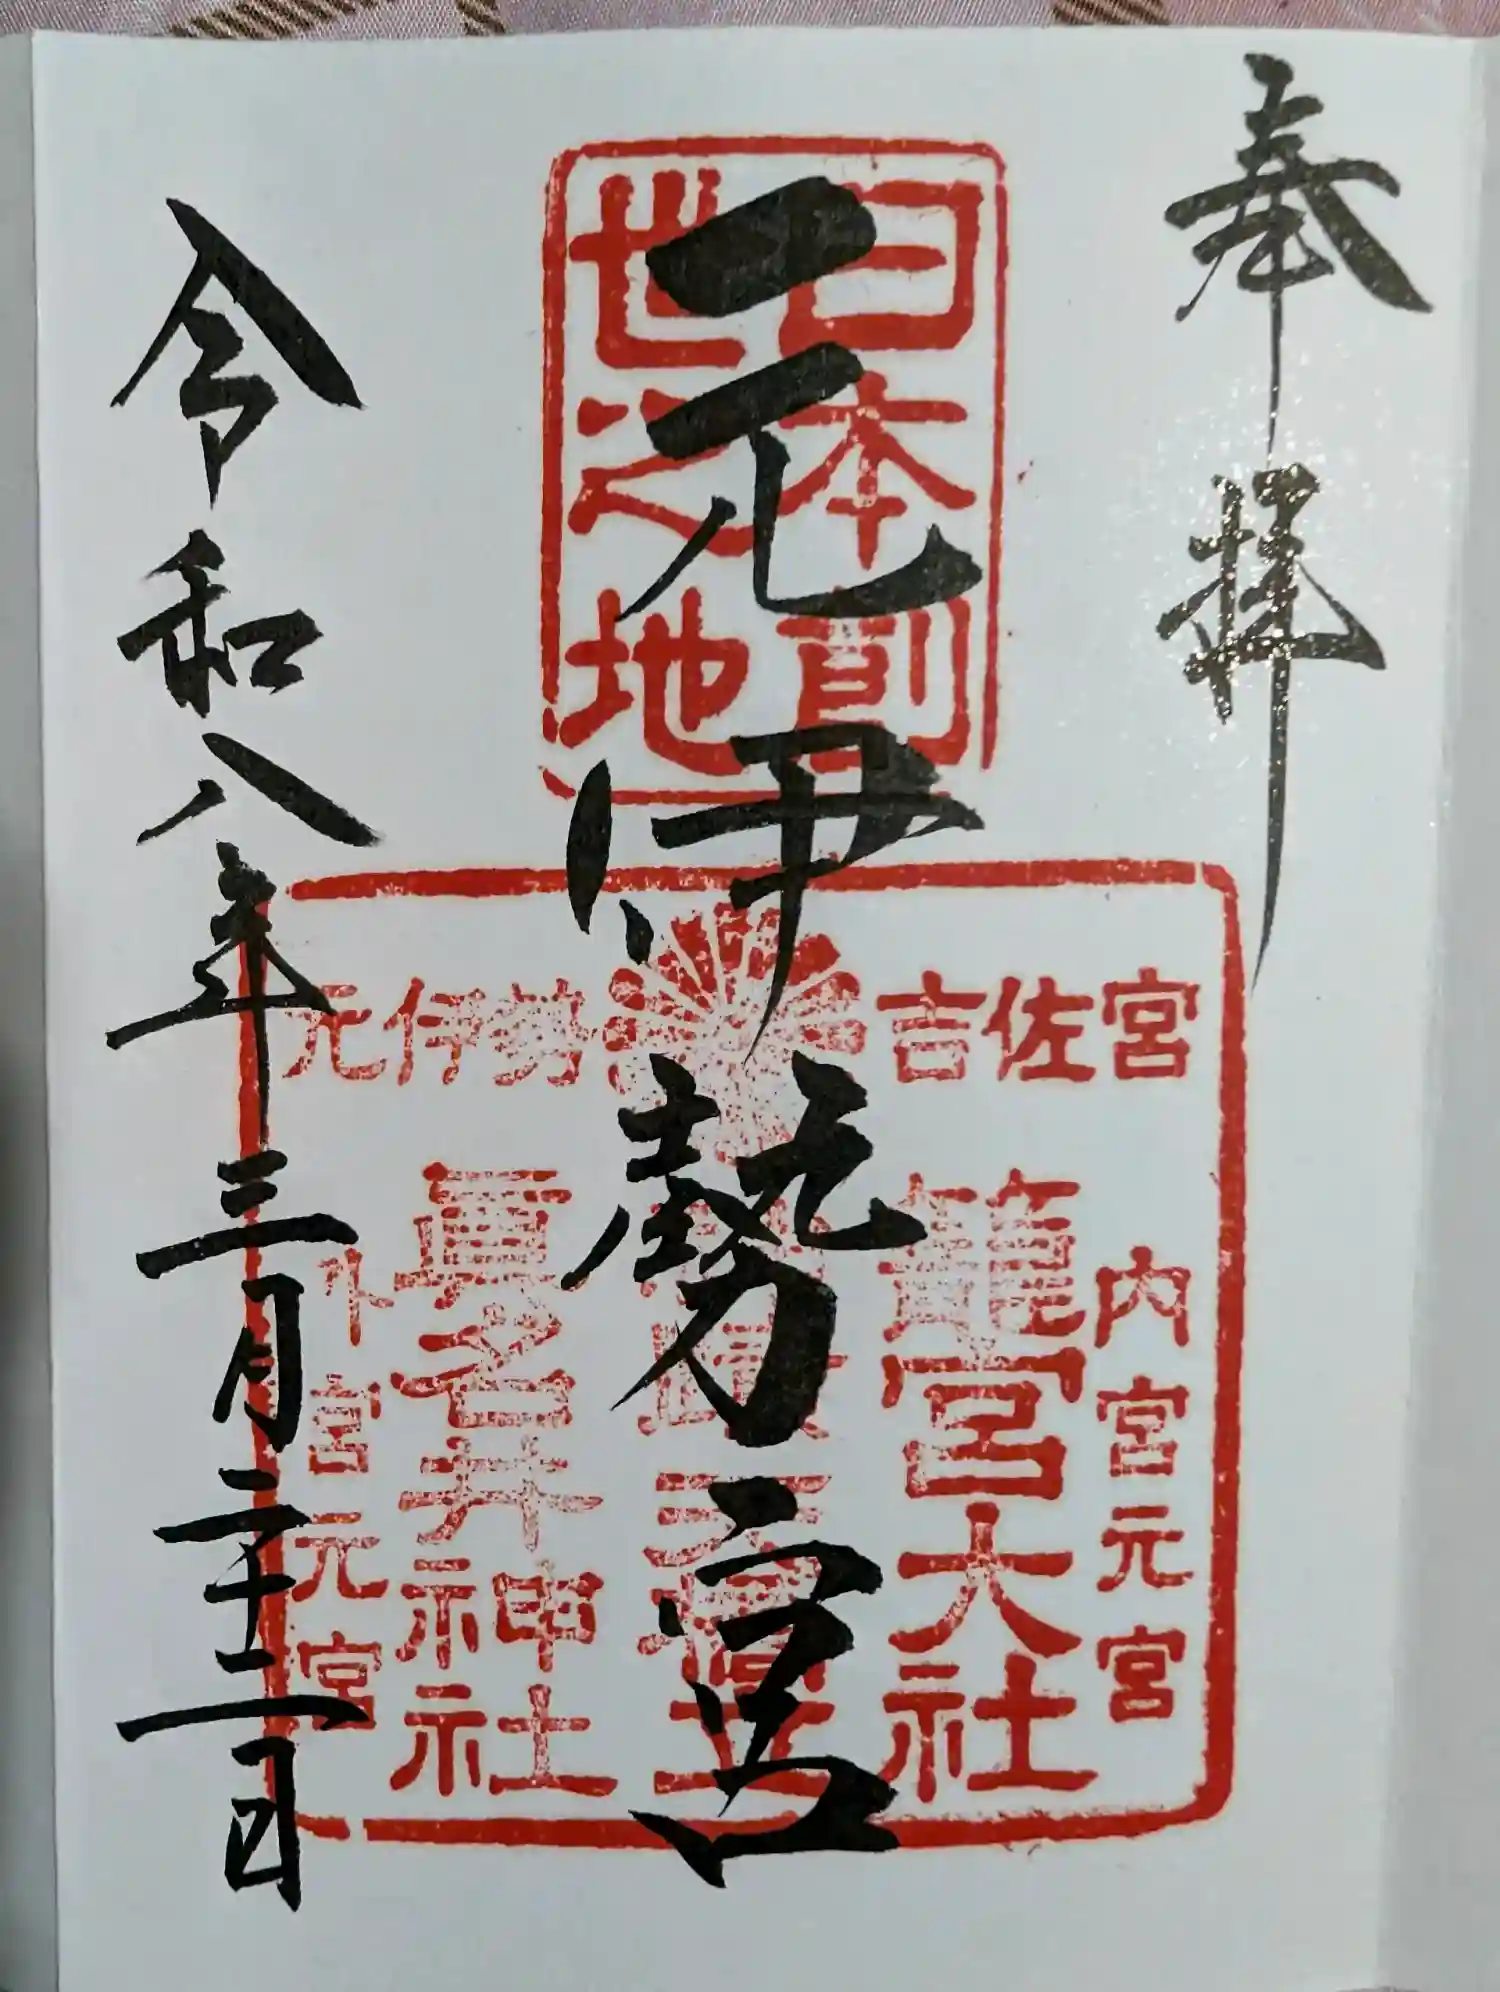 奉拝
日本創
世之地
元伊勢宮
元伊勢 吉佐宮
内宮元宮
籠宮大社
天橋立
眞名井神社
外宮元宮
令和八年三月二十二日